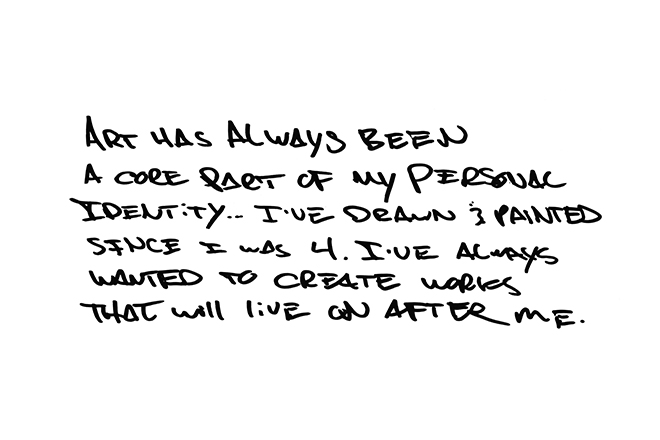 ART HAS ALWAYS BEEN
A CORE PART OF MY PERSONAL
IDENTITY... I'VE DRAWN & PAINTED
SINCE I WAS 4. I'VE ALWAYS
WANTED TO CREATE WORKS
THAT will liVE ON AFTER ME.